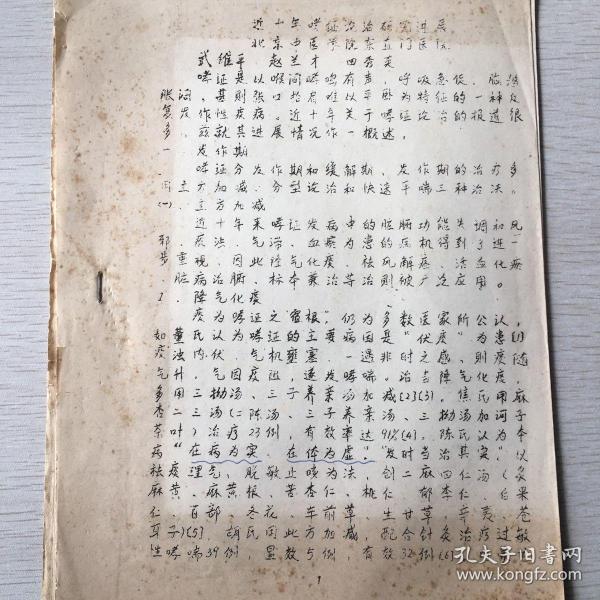 近十年哮证治疗研究进展
北京中医学院东直门医院
武维平 赵兰才 田秀英
哮证是以喉间哮鸣有声，呼吸急促，甚则张口抬肩难以平卧为特征的一种
发作性疾病。近十年关于哮证论治的报道很
多，兹就其进展情况作一概述。
一、发作期
哮证分发作期和缓解期，发作期的治疗多
用主方加减、分型论治和快速平喘三种治疗法。
(一)主方加减
近十年来哮证发病中的脏腑功能失调和风
邪、痰浊、气滞、血瘀为患的病机得到了进一
步重视，因此，理气化痰、祛风解痉、活血化瘀
脏病治腑、标本兼治等原则被广泛应用。
1、降气化痰
痰为哮证之"宿根"，仍为多数医家所公认，
如董氏认为哮证的主要病因是"家痰"为患，
痰浊内伏，气机壅塞，一遇非时之感，则痰随
气升，气因痰阻，遂发哮喘。治当降气化痰，
多用三拗汤、三子养亲汤加减(2)(3)。焦氏用麻
杏二三汤(二陈汤、三子养亲汤、三拗汤加诃子
茶叶)治疗23例，有效率达91%(4)。陈氏认为本
病"在病为实，在体为虚。"发时当治其实，以
祛痰理气、脱敏止咳为法，创二麻四仁汤(炙
麻黄、麻黄根、苦杏仁、桃仁、郁李仁、白果
仁、百部、冬花、车前草、生甘草、辛夷、苍
耳子)(5)，胡氏用此方加减，配合针灸治疗过敏
性哮喘39例，显效5例，有效32例(6)。
1
孔夫子旧书网
www.kongfz.com